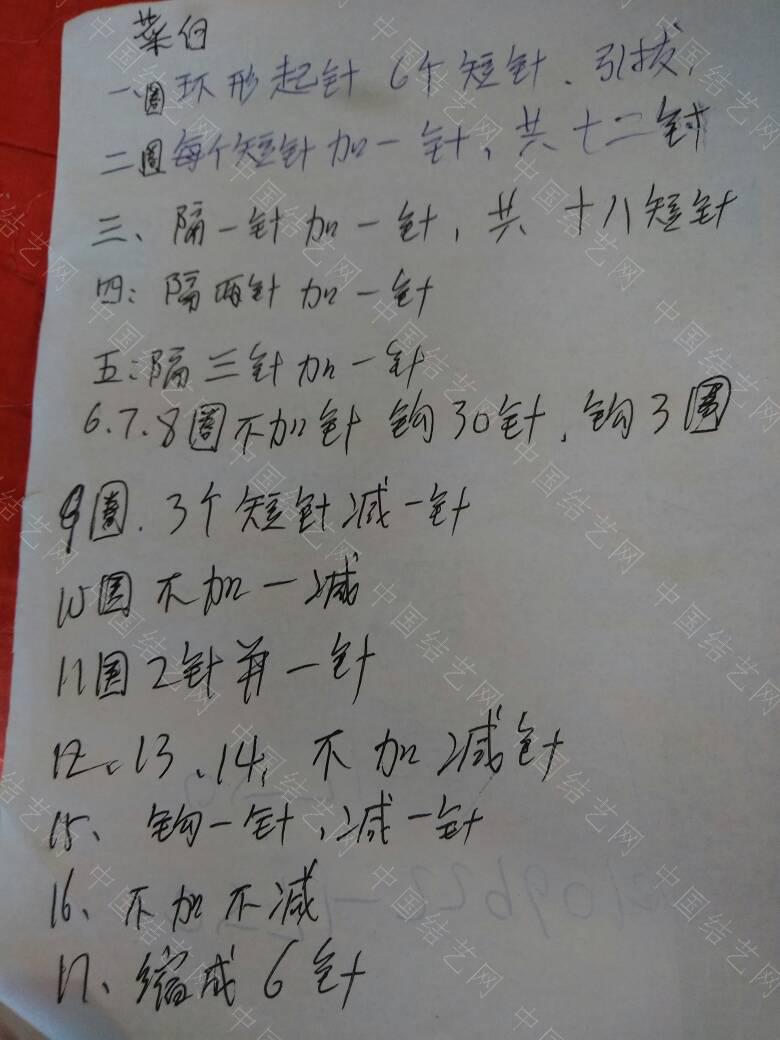 菜白
一、圈环形起针6个短针、引拔,
二圈每个短针加一针,共十二针
三、隔一针加一针,共十八短针
四:隔两针加一针
五:隔三针加一针
6.7.8圈不加针 钩30针,钩3圈
9圈.3个短针减一针
10圈不加一减
11圈2针并一针
12、13、14,不加减针
15、钩一针,减一针
16、不加不减
17、缩成6针
中国结艺网